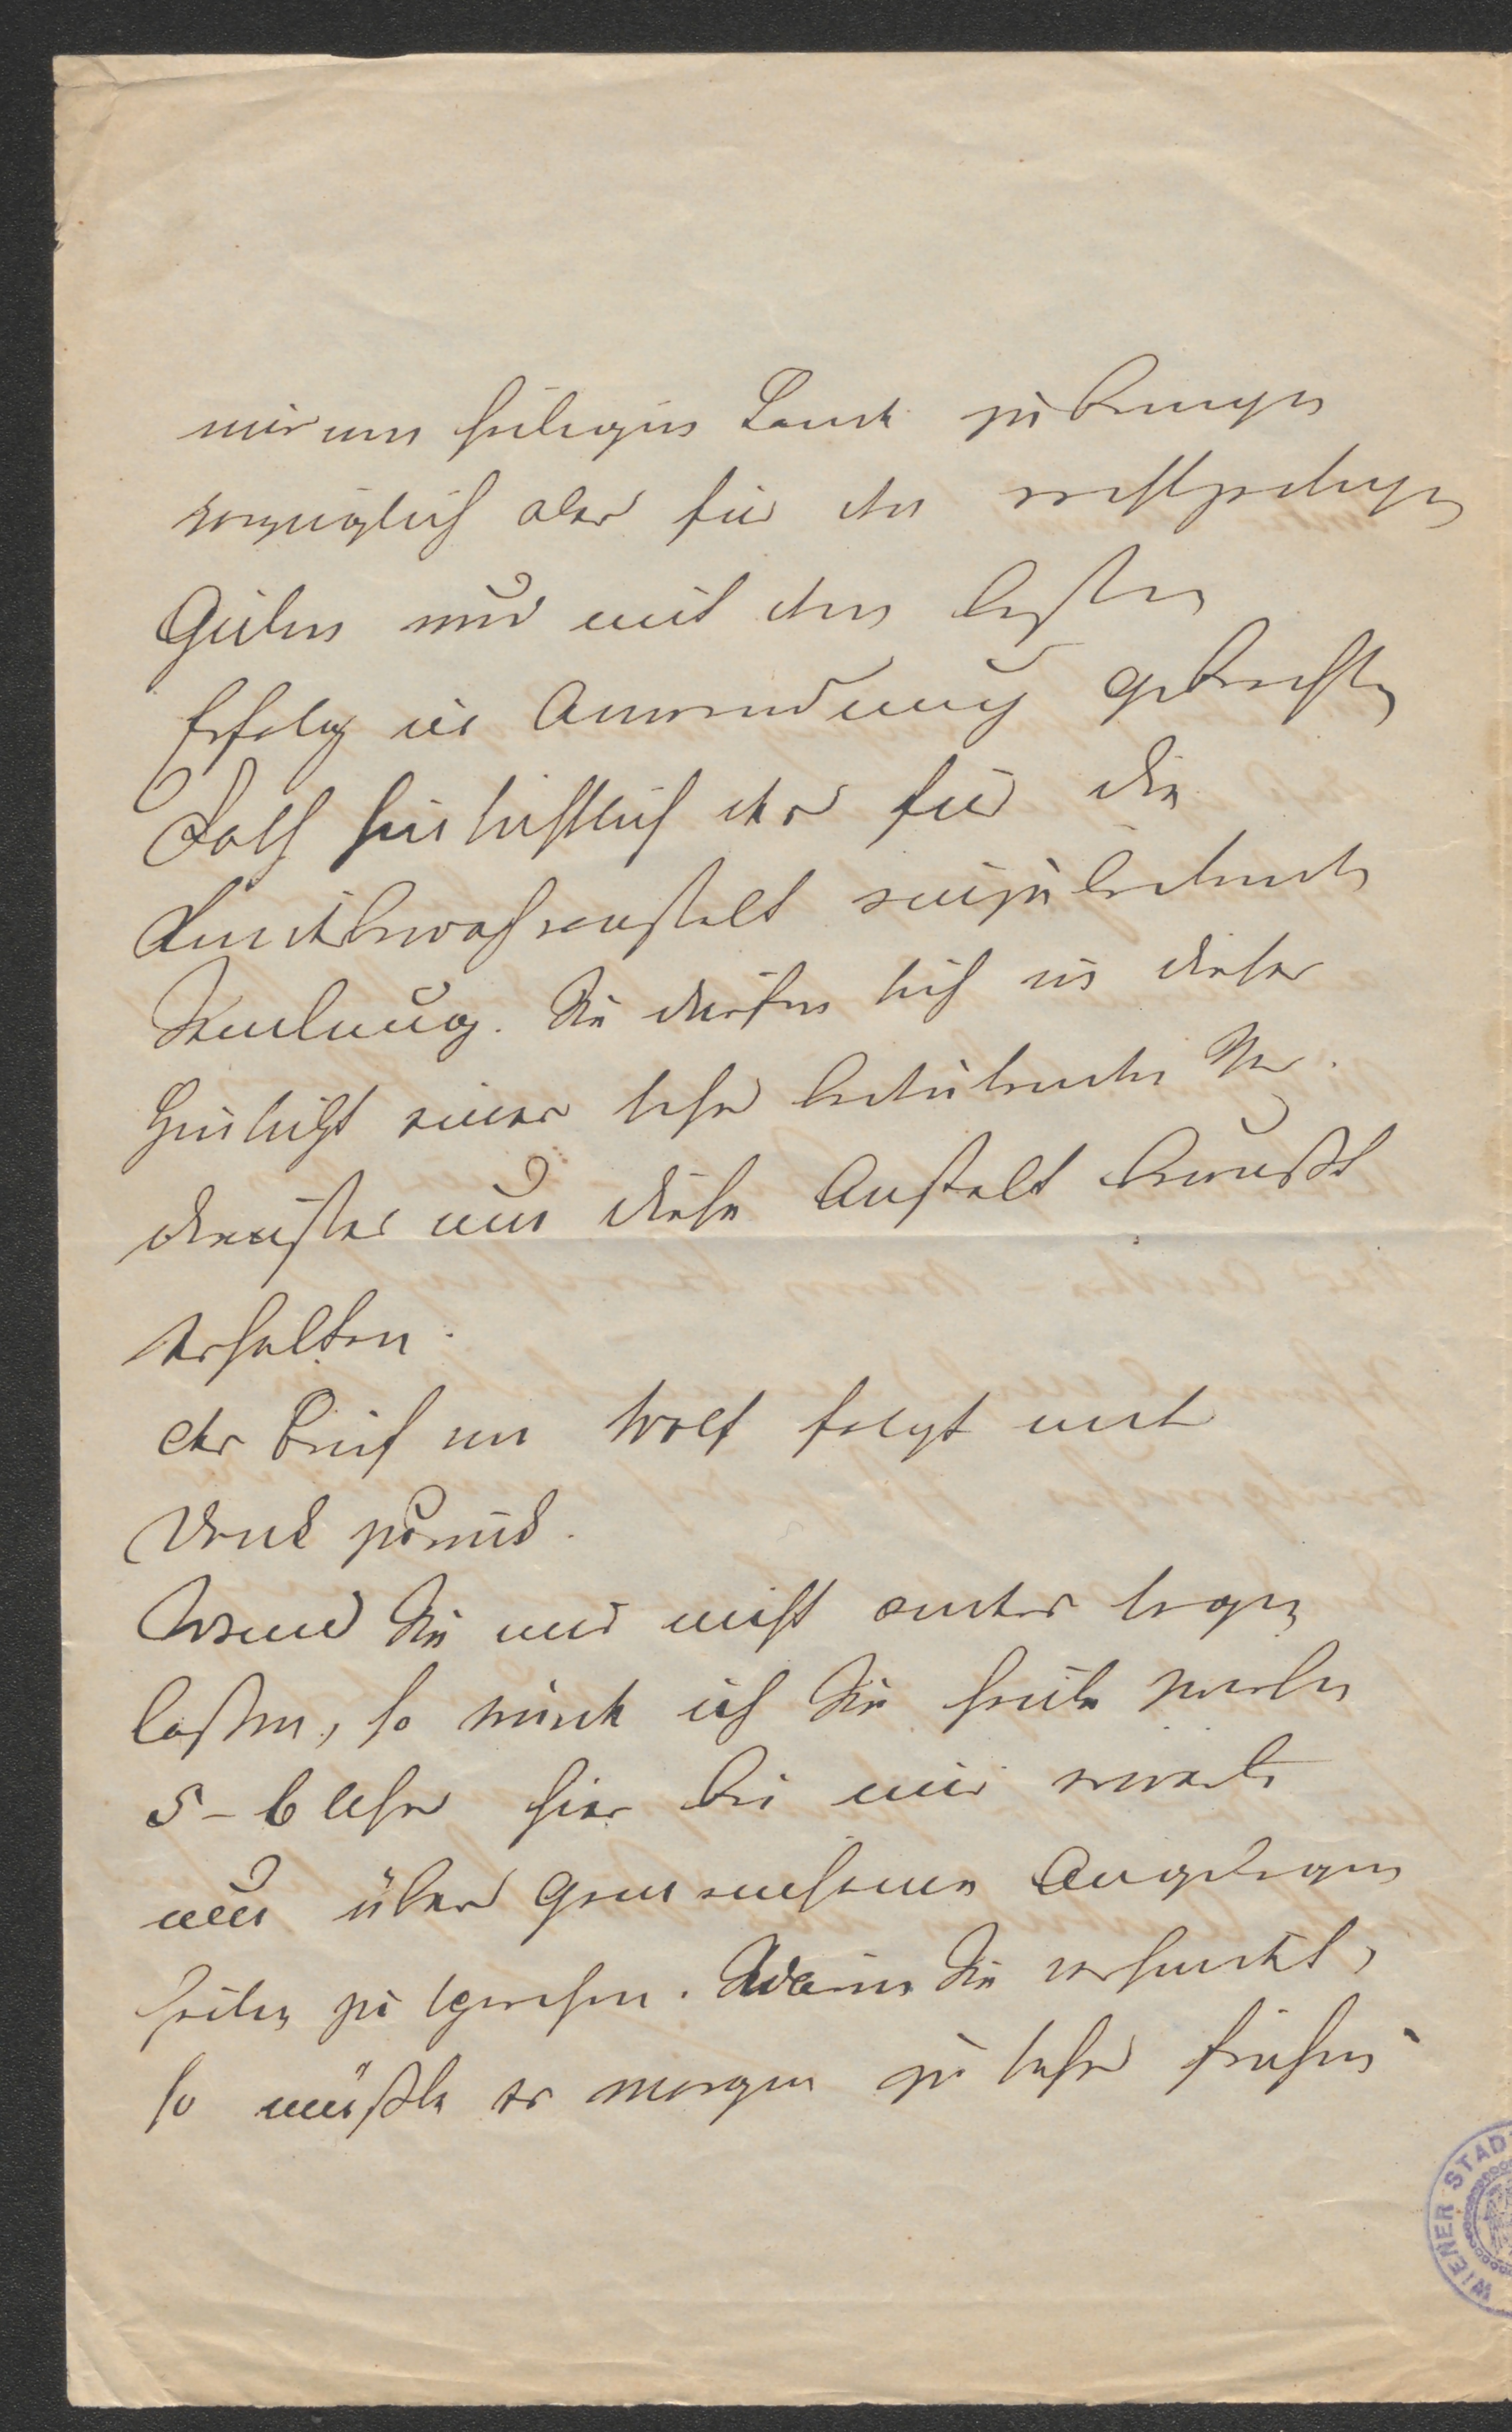 meinen heiligen Dank zu bringen
vorzüglich aber für den rechtzeitigen
Guten und mit dem besten
Erfolg in Anwendung gebrachten
Rath hinsichtlich der für die
Kinderbewahranstalt einzuleitenden
Samlung. Sie dürfen sich in dieser
Hinsicht eines sehr bedeutenden Ver-
dienstes um diese Anstalt bewußt
erhalten.
der Brief von Wolf folgt mit
Dank zurück.
Wenn Sie mir nicht anders sagen
lassen, so würde ich Sie heute zwischen
5-6 Uhr hier bei mir erwarten
um über gemeinsame Angelegen
heiten zu sprechen. Wären Sie verhindert,
so müßte es morgen zu sehr früher
WIENER STAD